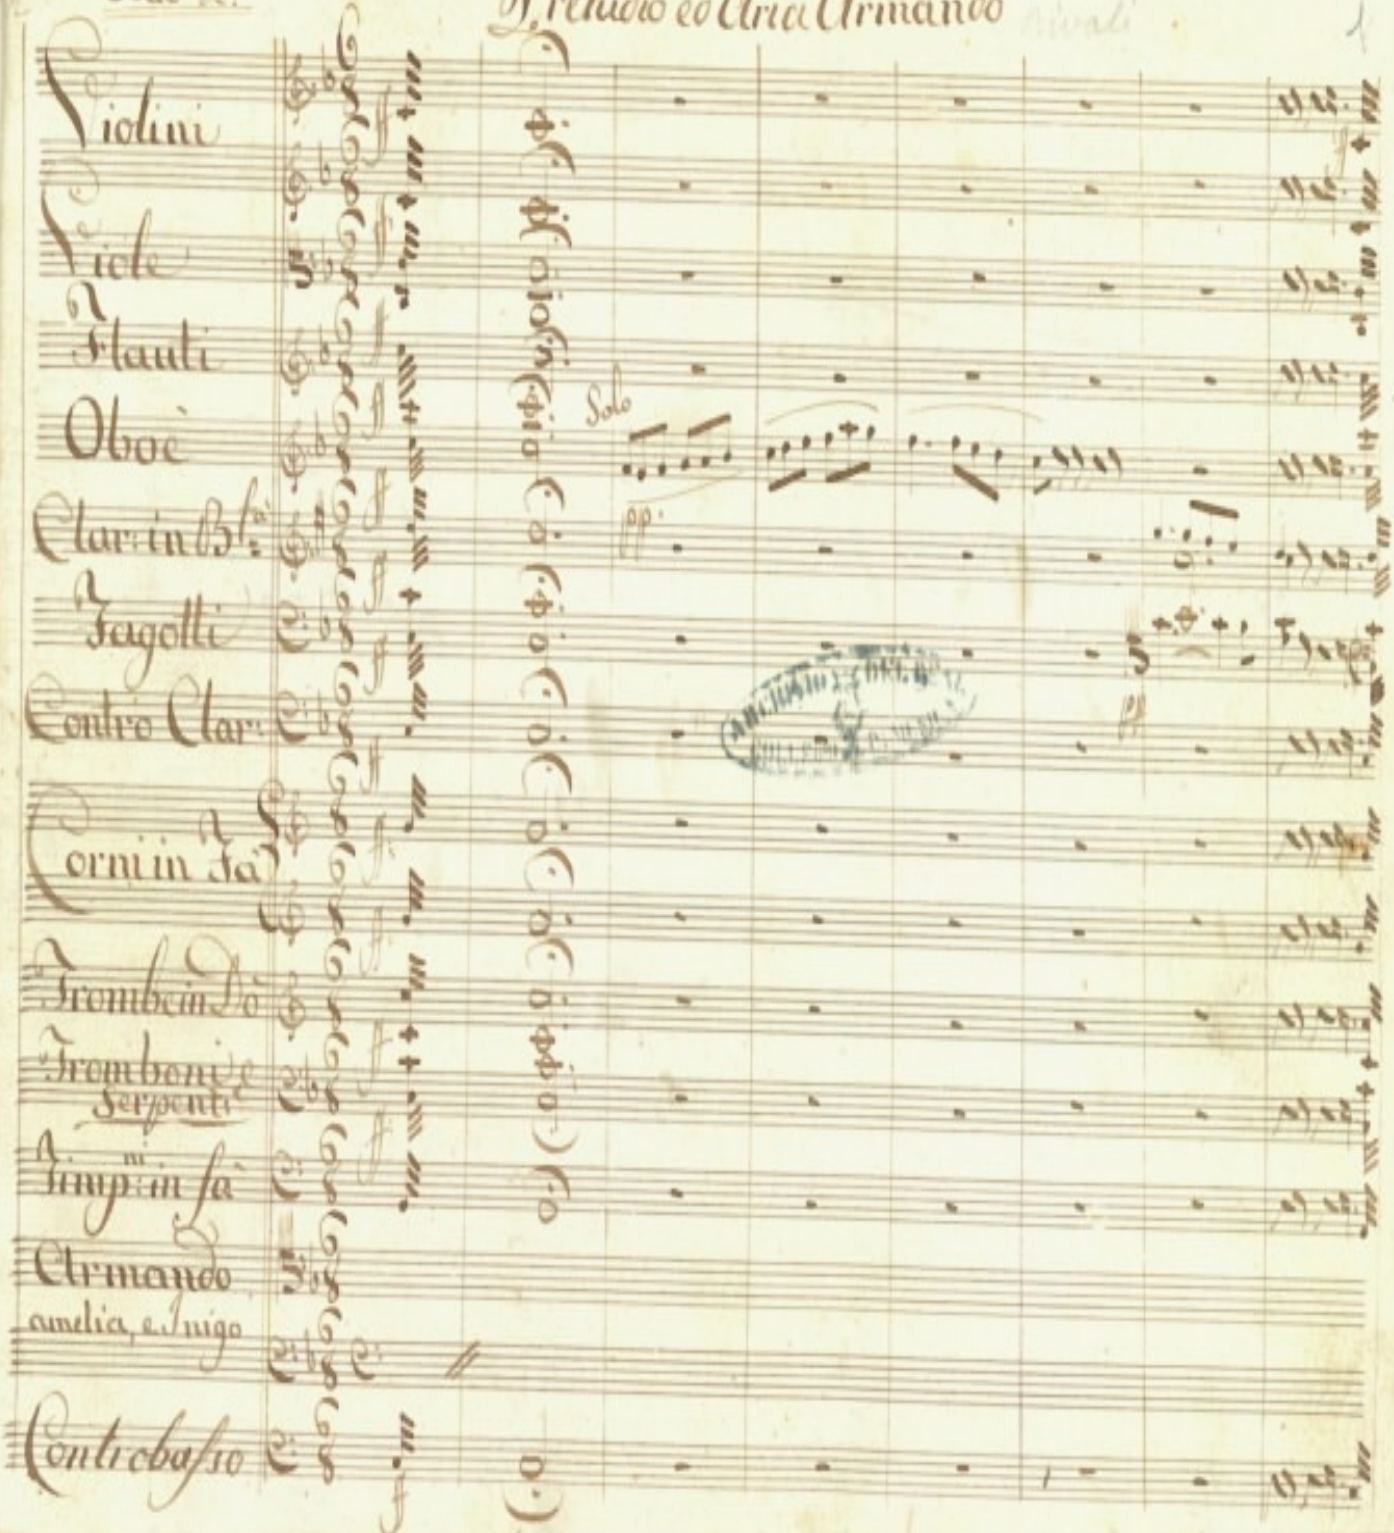 Preludio ed Aria Armando
Rivali
1
Violini
Viole
Flauti
Solo
Oboè
pp.
Clar: in B fà:
Fagotti
pp
Contro Clar:
Corni in Fà
Trombe in Dò
Tromboni e
Serpenti
Timp:ni in fà
Armando
amelia, e Inigo
Controbasso
ff